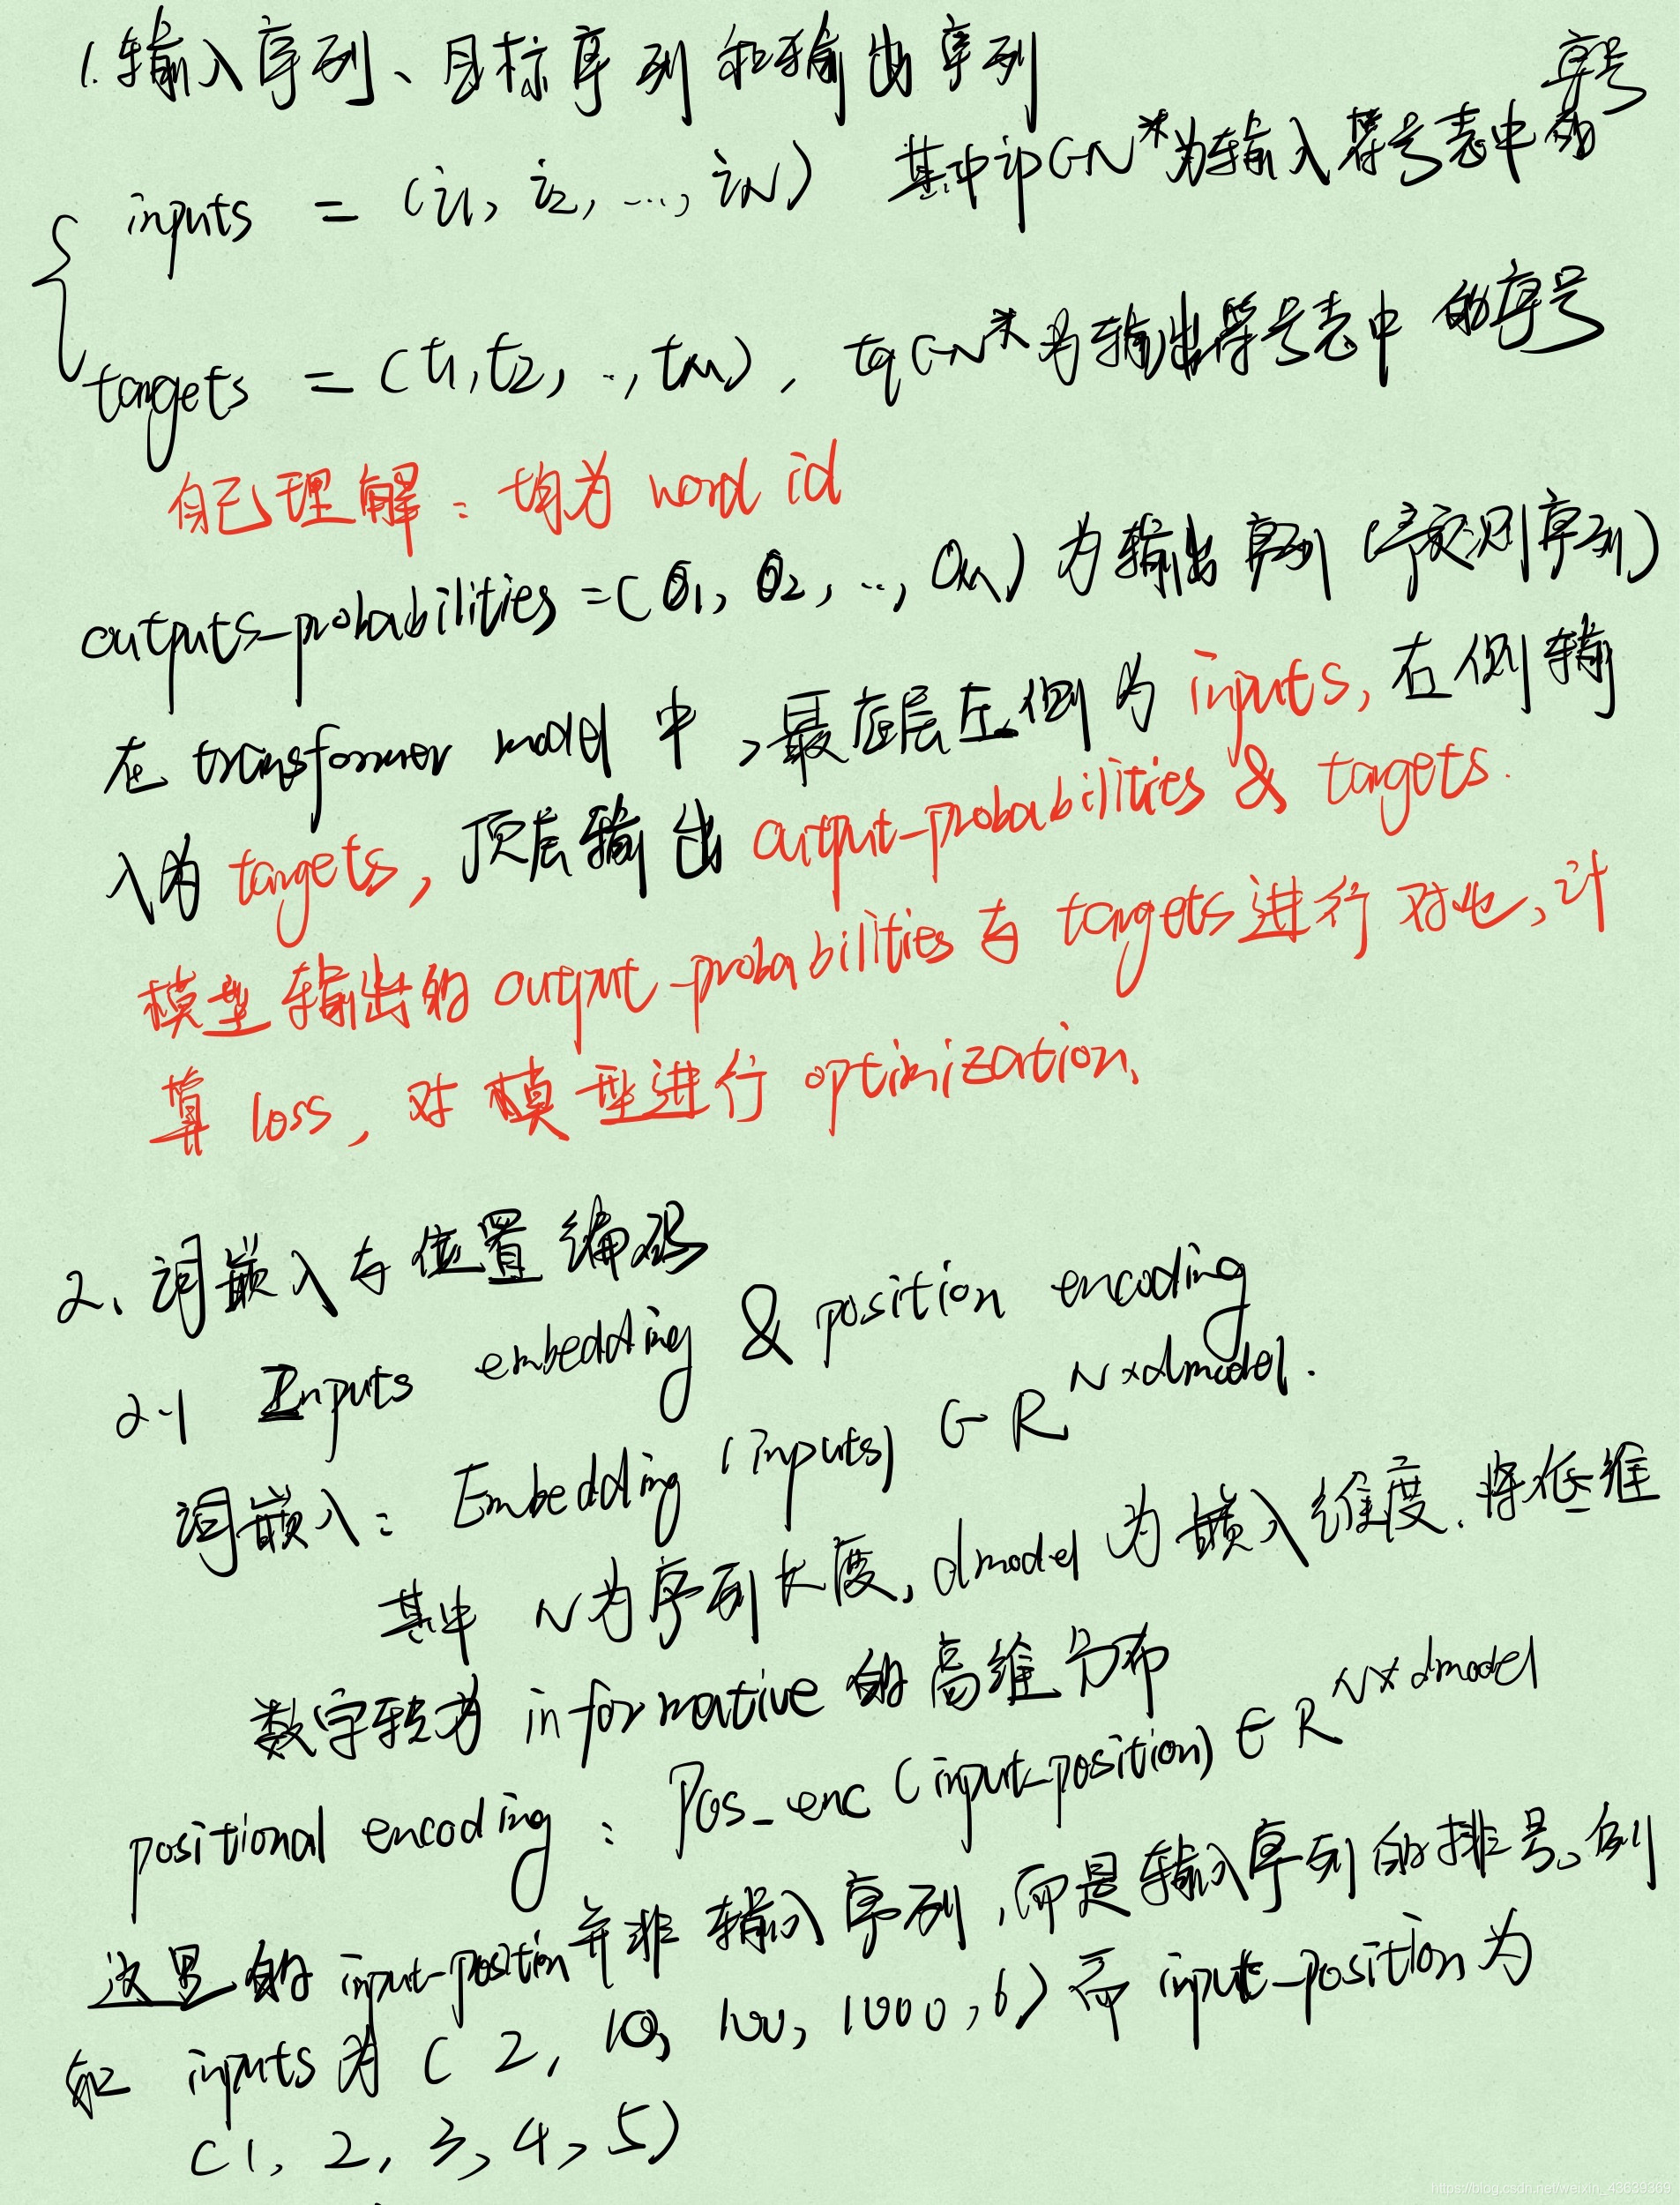 1.输入序列、目标序列和输出序列
inputs = (i1, i2, ..., iN) 其中ip∈N*为输入符号表中的序号
targets = (t1,t2, .., tM), tq∈N*为输出符号表中的序号
自己理解：均为 word id
outputs-probabilities =(O1, O2, .., OM) 为输出序列 (预测序列)
在 transformer model 中，最底层左侧为 inputs, 右侧输
入为 targets, 顶层输出 output-probabilities & targets.
模型输出的 output-probabilities 与 targets进行对比,计
算 loss, 对模型进行 optimization.
2、词嵌入与位置编码
2-1 Inputs embedding & position encoding
词嵌入: Embedding (inputs) ∈ R^N×dmodel.
其中 N为序列长度, dmodel 为嵌入维度.将低维
数字转为 informative 的高维分布
positional encoding : Pos_enc (input-position) ∈ R^N×dmodel
这里的 input-position并非输入序列,而是输入序列的排号。例
如 inputs 为 ( 2, 10, 100, 1000, 6) 而 input-position 为
(1, 2, 3, 4, 5)